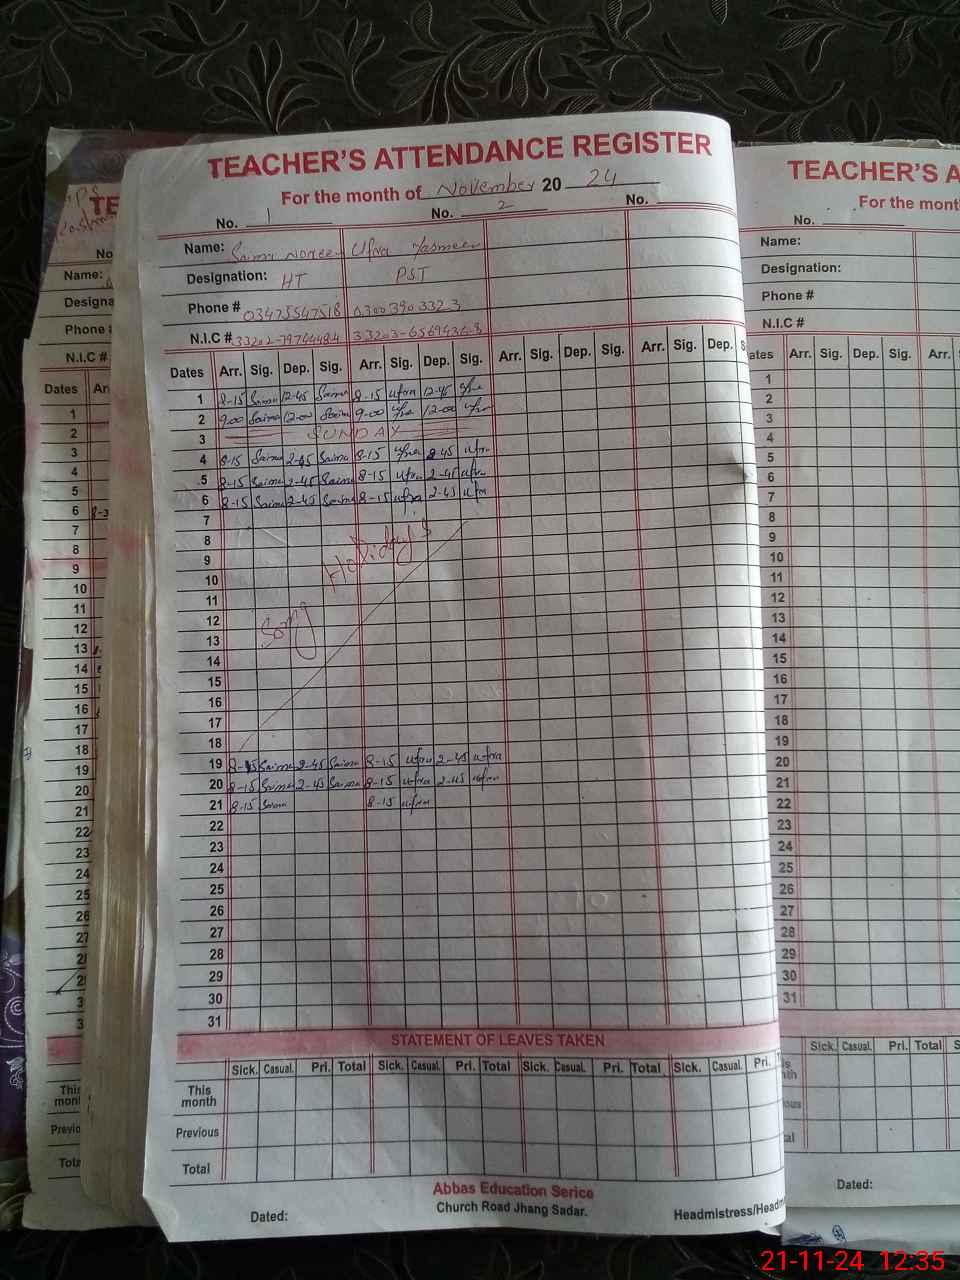 TEACHER'S ATTENDANCE REGISTER
For the month of November 20 24
No. 1 No. 2 No.
Name: Saima Noreen Ufra Yasmeen
Designation: HT PST
Phone # 03475547518 03003903323
N.I.C #
Dates Arr. Sig. Dep. Sig. Arr. Sig. Dep. Sig. Arr. Sig. Dep. Sig. Arr. Sig. Dep.
1 8-15 Saima 12-45 Saima 8-15 ufra 12-45 ufra
2 9-00 Saima 12-00 Saima 9-00 ufra 12-00 ufra
3 SUNDAY
4 8-15 Saima 2-45 Saima 8-15 ufra 2-45 ufra
5 8-15 Saima 2-45 Saima 8-15 ufra 2-45 ufra
6 8-15 Saima 2-45 Saima 8-15 ufra 2-45 ufra
7
8
9
10
11
12
13
14
15
16
17
18
Smog Holiday's
19 8-15 Saima 2-45 Saima 8-15 ufra 2-45 ufra
20 8-15 Saima 2-45 Saima 8-15 ufra 2-45 ufra
21 8-15 Saima 8-15 ufra
22
23
24
25
26
27
28
29
30
31
STATEMENT OF LEAVES TAKEN
Sick. Casual. Pri. Total Sick. Casual. Pri. Total Sick. Casual. Pri. Total Sick. Casual. Pri.
This
month
Previous
Total
Abbas Education Serice
Church Road Jhang Sadar.
Dated: Headmistress/Headm
TEACHER'S A
For the mont
No.
Name:
Designation:
Phone #
N.I.C #
ates Arr. Sig. Dep. Sig. Arr.
1
2
3
4
5
6
7
8
9
10
11
12
13
14
15
16
17
18
19
20
21
22
23
24
25
26
27
28
29
30
31
Sick. Casual. Pri. Total S
Dated:
TE
No
Name:
Designa
Phone #
N.I.C #
Dates Ar
1
2
3
4
5
6
7
8
9
10
11
12
13
14
15
16
17
18
19
20
21
22
23
24
25
26
27
This
mont
Previo
Tota
21-11-24 12:35